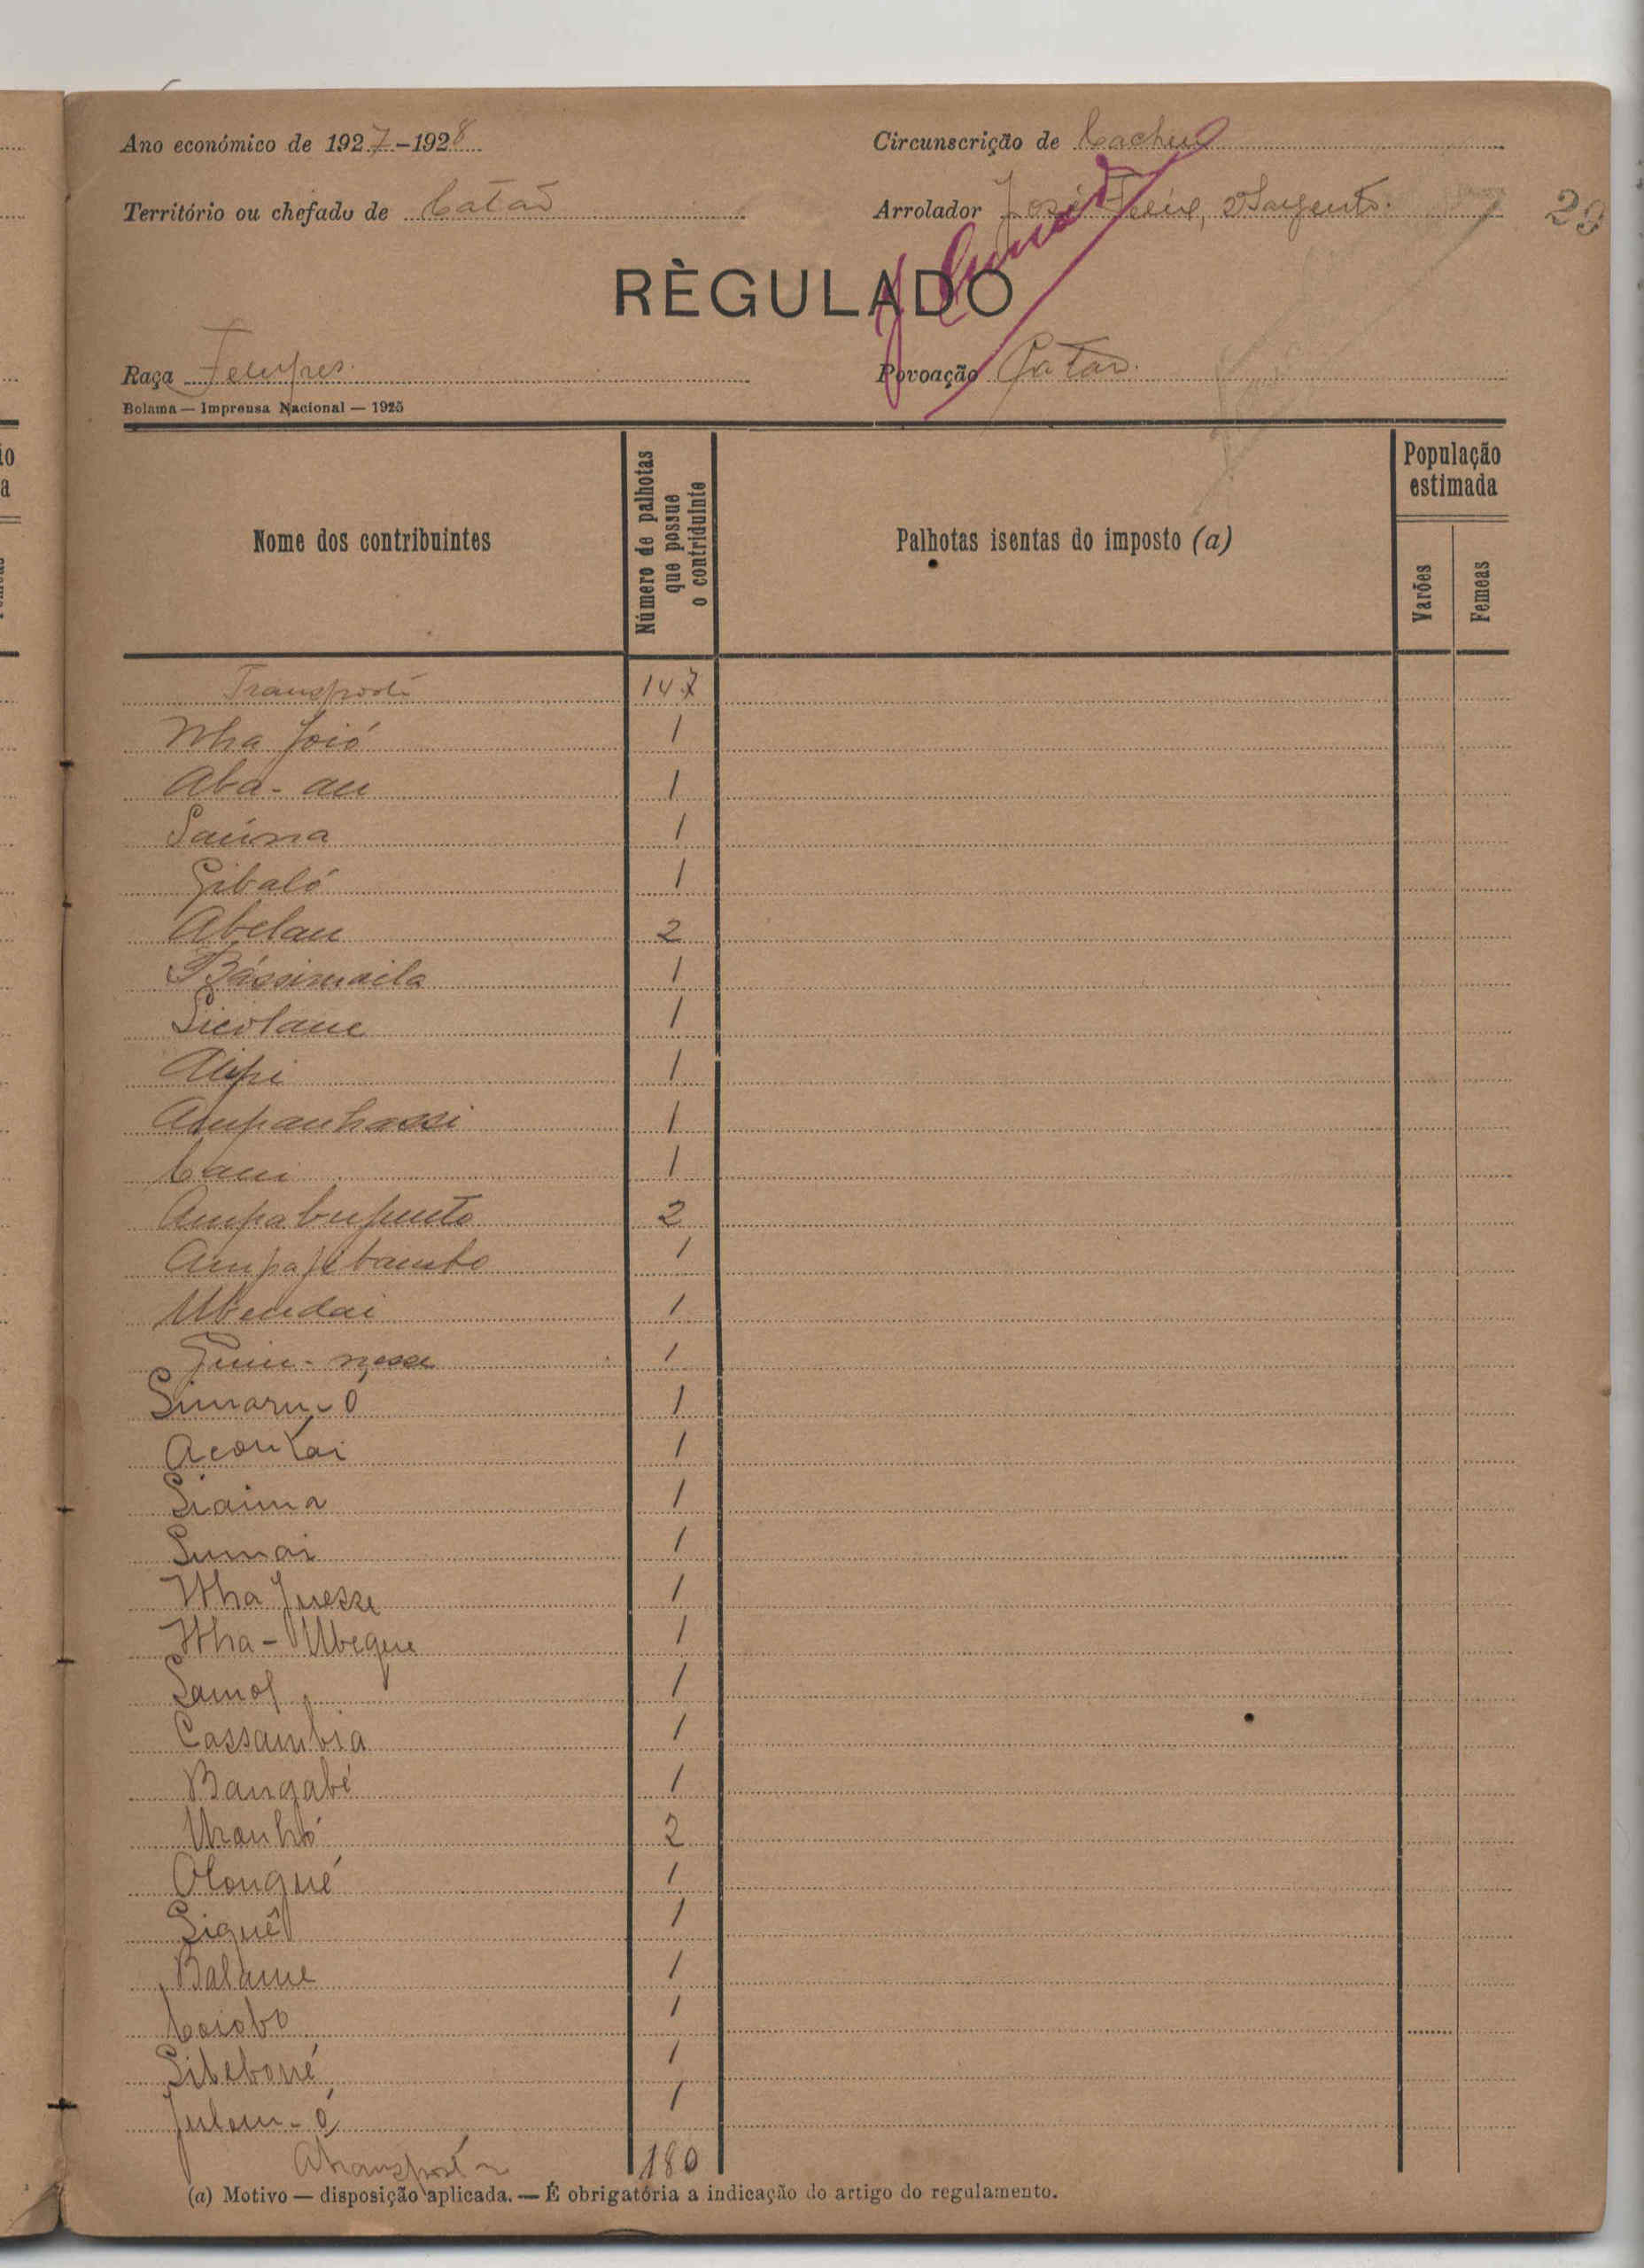 Ano económico de 1927-1928
Circunscrição de Cacheu
Território ou chefado de Catão
Arrolador José Felix, Sargento.
29
RÈGULADO
Raça Felupes.
Povoação Catão.
Bolama — Imprensa Nacional — 1925
Nome dos contribuintes
Número de palhotas que possue o contriduinte
Palhotas isentas do imposto (a)
População estimada
Varões
Femeas
Transporte 147
Nha Joió 1
Aba-au 1
Saúna 1
Gibaló 1
Abelau 2
Bássimaila 1
Sicolane 1
Alipi 1
Ampanhassi 1
Caui 1
Ampabupunto 2
1
Ubendai 1
1
Simaru-ó 1
Acontai 1
Siaima 1
Sumai 1
Nha Juesse 1
Nha-Ubeque 1
1
Cassambia 1
Bangabé 1
Uranhó 2
Olongué 1
Siguê 1
Balaune 1
Caiobo 1
Sibeboné 1
Julem-ó 1
A transportar 180
(a) Motivo — disposição aplicada. — É obrigatória a indicação do artigo do regulamento.